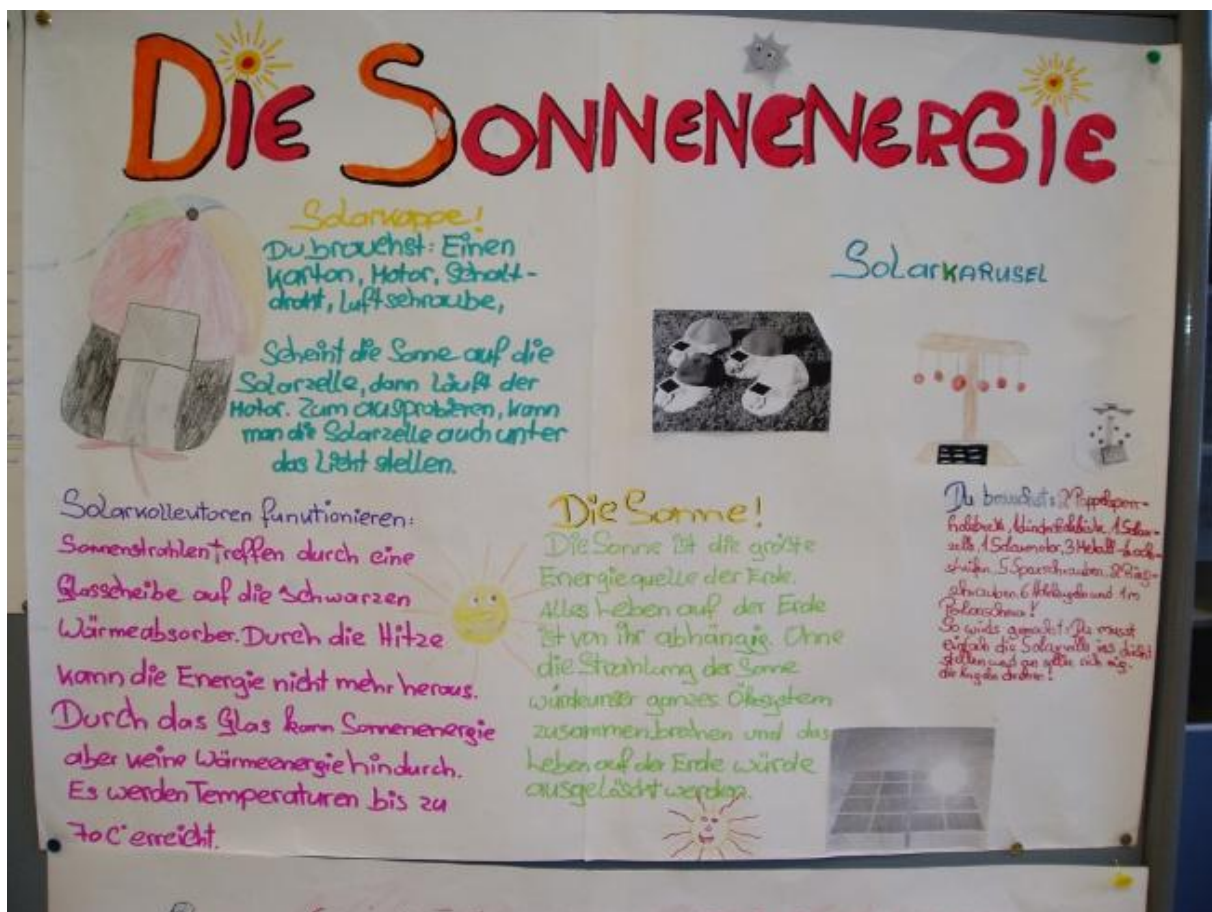 DIE SONNENENERGIE
Solarkappe!
Du brauchst: Einen
Karton, Motor, Schalt-
draht, Luftschraube,
Scheint die Sonne auf die
Solarzelle, dann läuft der
Motor. Zum ausprobieren, kann
man die Solarzelle auch unter
das Licht stellen.
SOLARKARUSEL
Solarkollektoren funktionieren:
Sonnenstrahlen treffen durch eine
Glasscheibe auf die schwarzen
Wärmeabsorber. Durch die Hitze
kann die Energie nicht mehr heraus.
Durch das Glas kann Sonnenenergie
aber keine Wärmeenergie hindurch.
Es werden Temperaturen bis zu
70 C° erreicht.
Die Sonne!
Die Sonne ist die größte
Energiequelle der Erde.
Alles Leben auf der Erde
ist von ihr abhängig. Ohne
die Strahlung der Sonne
würde unser ganzes Ökosystem
zusammenbrechen und das
Leben auf der Erde würde
ausgelöscht werden.
Du brauchst: 2 Pappelsperr-
holzbrett, 1 Solar-
zelle, 1 Solarmotor, 3 Metall-Loch-
streifen, 5 Spanschrauben, 2 Ring-
schrauben, 6 und 1m
So wirds gemacht: Du musst
einfach die Solarzelle ins Licht
stellen und
die Kugeln drehen!